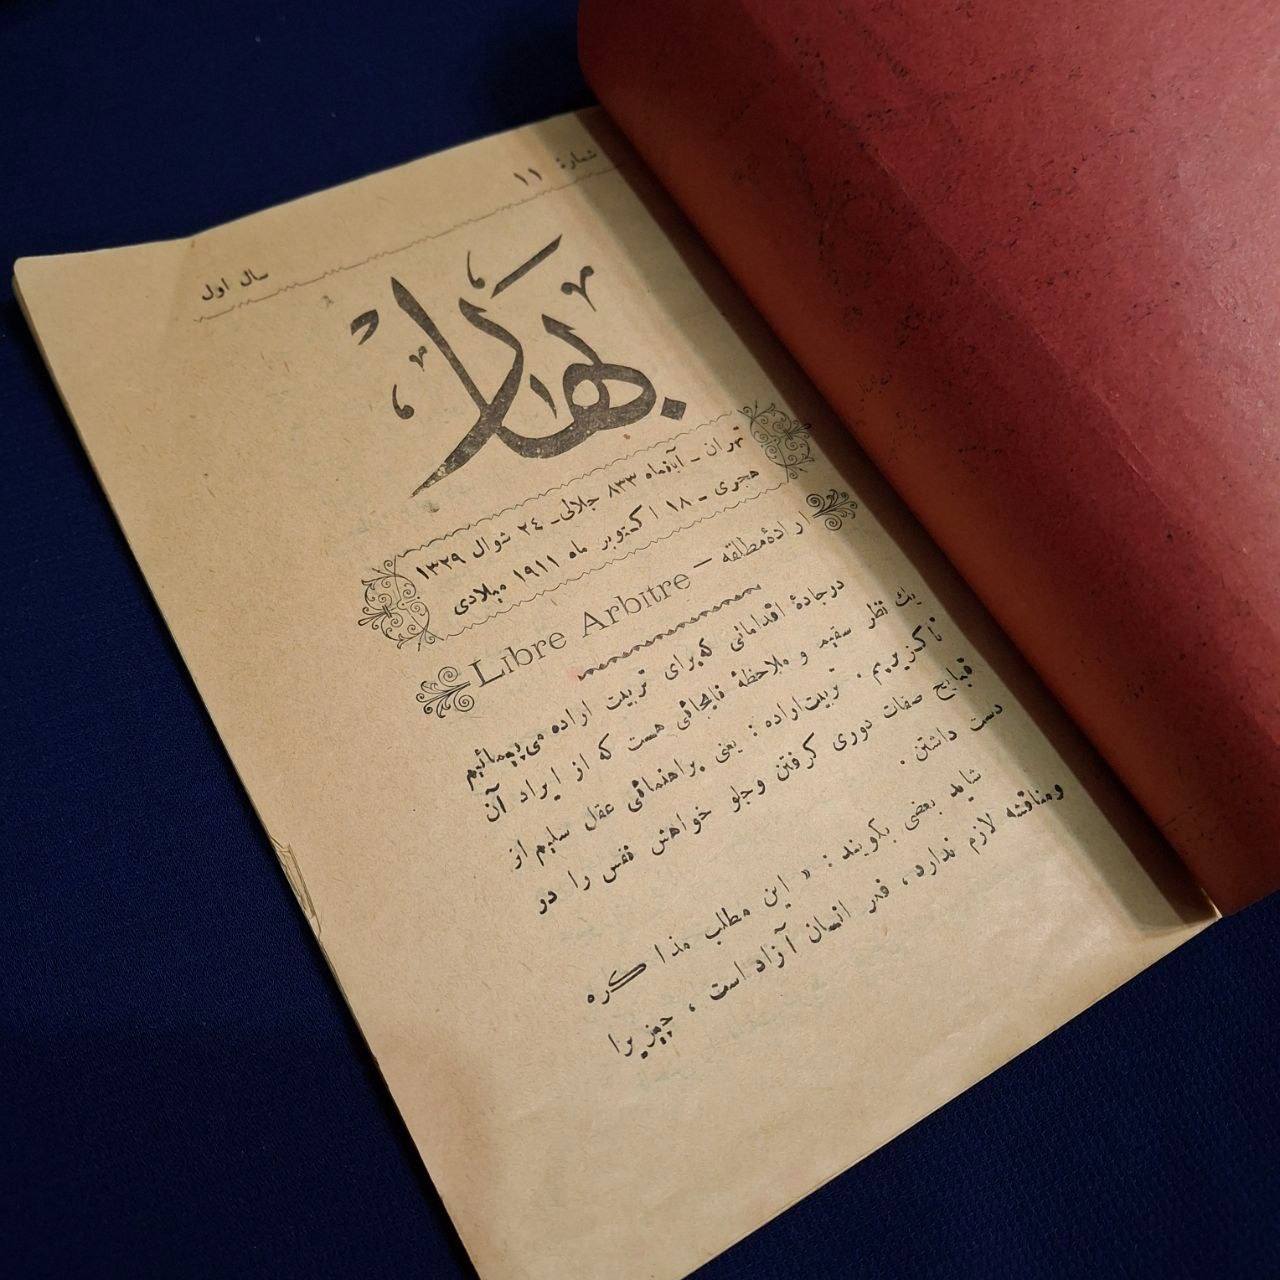 شمارهٔ ۱۱
سال اول
بهار
تهران - آبانماه ۸۳۳ جلالی - ۲۴ شوال ۱۳۲۹
هجری - ۱۸ اکتوبر ماه ۱۹۱۱ میلادی
ارادهٔ مطلقه – Libre Arbitre
درجادهٔ اقداماتی که برای تربیت اراده می پیمائیم
یك نظر سقیم و ملاحظهٔ نابجائی هست که از ایراد آن
ناگزیریم . تربیت اراده : یعنی براهنمائی عقل سلیم از
قبایح صفات دوری گرفتن وجلو خواهش نفس را در
دست داشتن .
شاید بعضی بگویند : « این مطلب مذاکره
ومناقشه لازم ندارد ، قدر انسان آزاد است ، چیزیرا